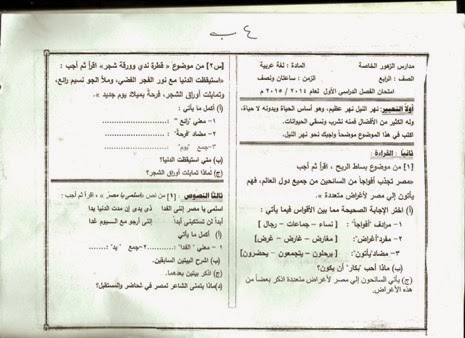 ٤ ب
مدارس الزهور الخاصة
المادة : لغة عربية
الصف : الرابع
الزمن : ساعتان ونصف
امتحان الفصل الدراسي الأول لعام ٢٠١٤ / ٢٠١٥ م
أولاً التعبير: نهر النيل نهر عظيم، فهو أساس الحياة وبدونه لا حياة،
وله الكثير من الأفضال فمنه نشرب ونسقى الحيوانات.
اكتب في هذا الموضوع موضحاً واجبك نحو نهر النيل.
ثانياً : القراءة :
[١] من موضوع بساط الريح ، اقرأ ثم أجب
«مصر تجذب أفواجاً من السائحين من جميع دول العالم، فهم
يأتون إلي مصر لأغراض متعددة »
( أ ) اختر الإجابة الصحيحة مما بين الأقواس فيما يأتي :
١- مرادف "أفواجاً": [ نساء – جماعات – رجال ]
٢- مفرد"أغراض": [ مغارض - غارض - غرض ]
٣- مضاد"يأتون": [ يرحلون – يتجمعون – يحضرون]
(ب) ماذا أحب "بكار" أن يكون؟
(ج) يأتي السائحون إلي مصر لأغراض متعددة اذكر بعضاً من
هذه الأغراض.
[س٢] من موضوع « قطرة ندي وورقة شجر» اقرأ ثم أجب :
«استيقظت الدنيا مع نور الفجر الفضي، وملأ الجو نسيم رائع،
وتمايلت أوراق الشجر، فرحةً بميلاد يوم جديد »
( أ ) أكمل ما يأتي :
١- معني "رائع "
٢- مضاد" فرحة":
٣-جمع "يوم"
(ب) متي استيقظت الدنيا؟
(ج) لماذا تمايلت أوراق الشجر؟
ثالثاً النصوص : [١] من نص «اسلمي يا مصر» ، اقرأ ثم أجب :
اسلمي يا مصر إنني الفدا ذي يدي إن مدت الدنيا يدا
أبداً لن تستكيني أبداً إنني أرجو مع السيوم غدا
( أ ) أكمل ما يأتي :
١- معني " الفدا" ٢-جمع " يد":
(ب) اشرح البيتين السابقين.
(ج) اذكر بيتين بعدهما.
(د)ماذا يتمنى الشاعر لمصر في الحاضر والمستقبل؟